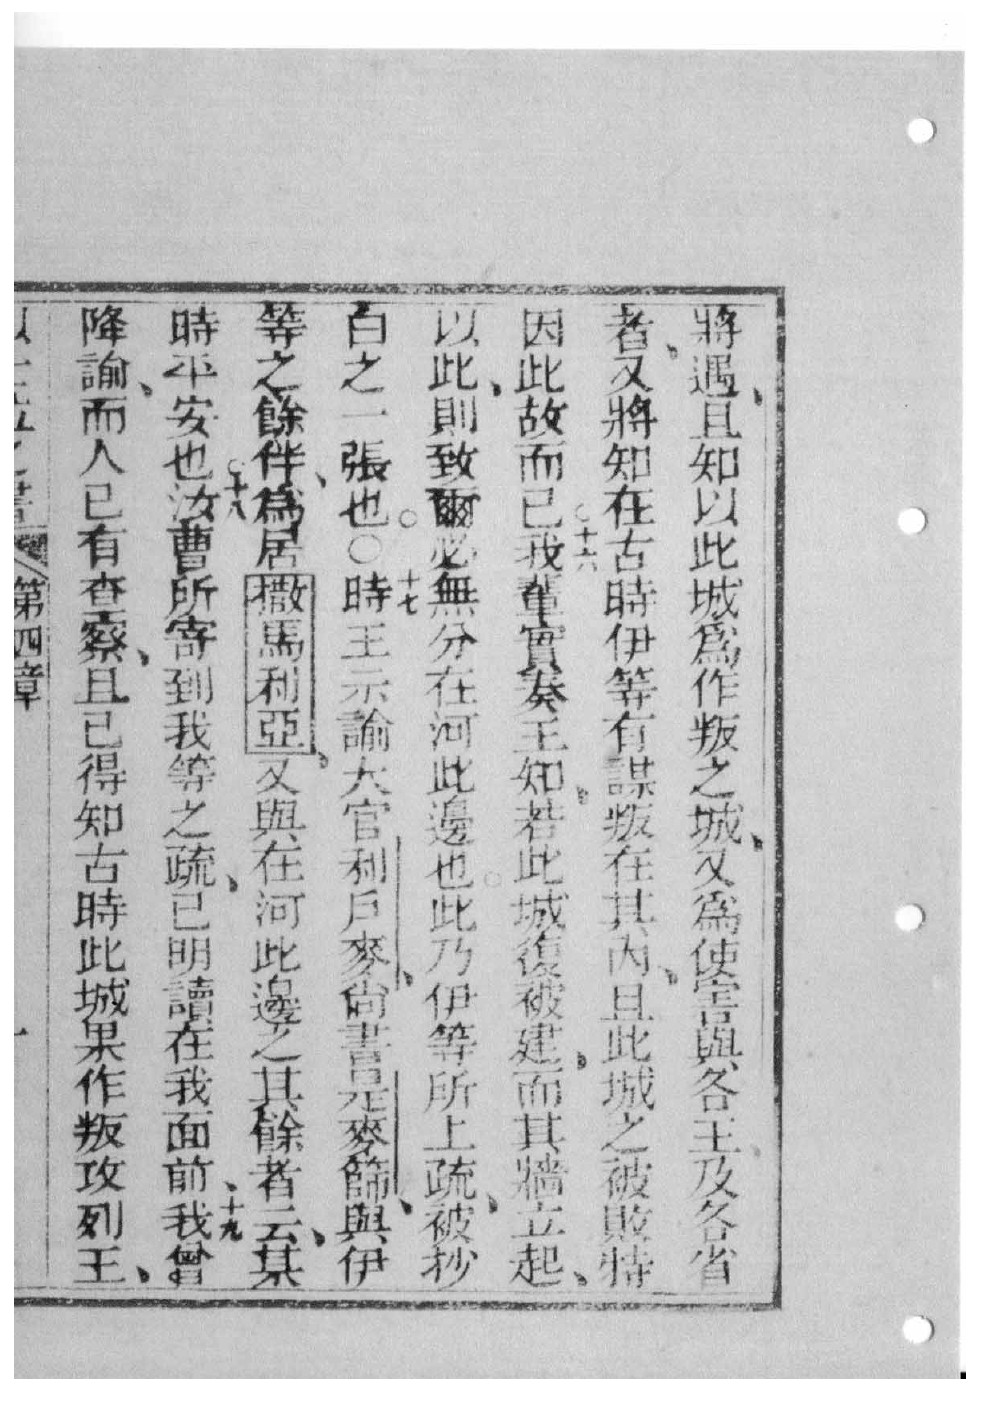 將遇、且知以此城爲作叛之城、又爲使害與各王、及各省
者、又將知在古時伊等有謀叛在其內、且此城之被敗特
因此故而已○十六我輩實奏王知、若此城復被建、而其牆立起、
以此、則致爾必無分在河此邊也○此乃伊等所上疏、被抄
白之一張也○○十七時王示諭大官利戶麥、尙書是麥篩、與伊
等之餘伴、爲居撒馬利亞、又與在河此邊之其餘者云、某
時平安也○十八汝曹所寄到我等之疏、已明讀在我面前、十九我曾
降諭、而人已有查察、且已得知古時此城果作叛攻列王、
第四章